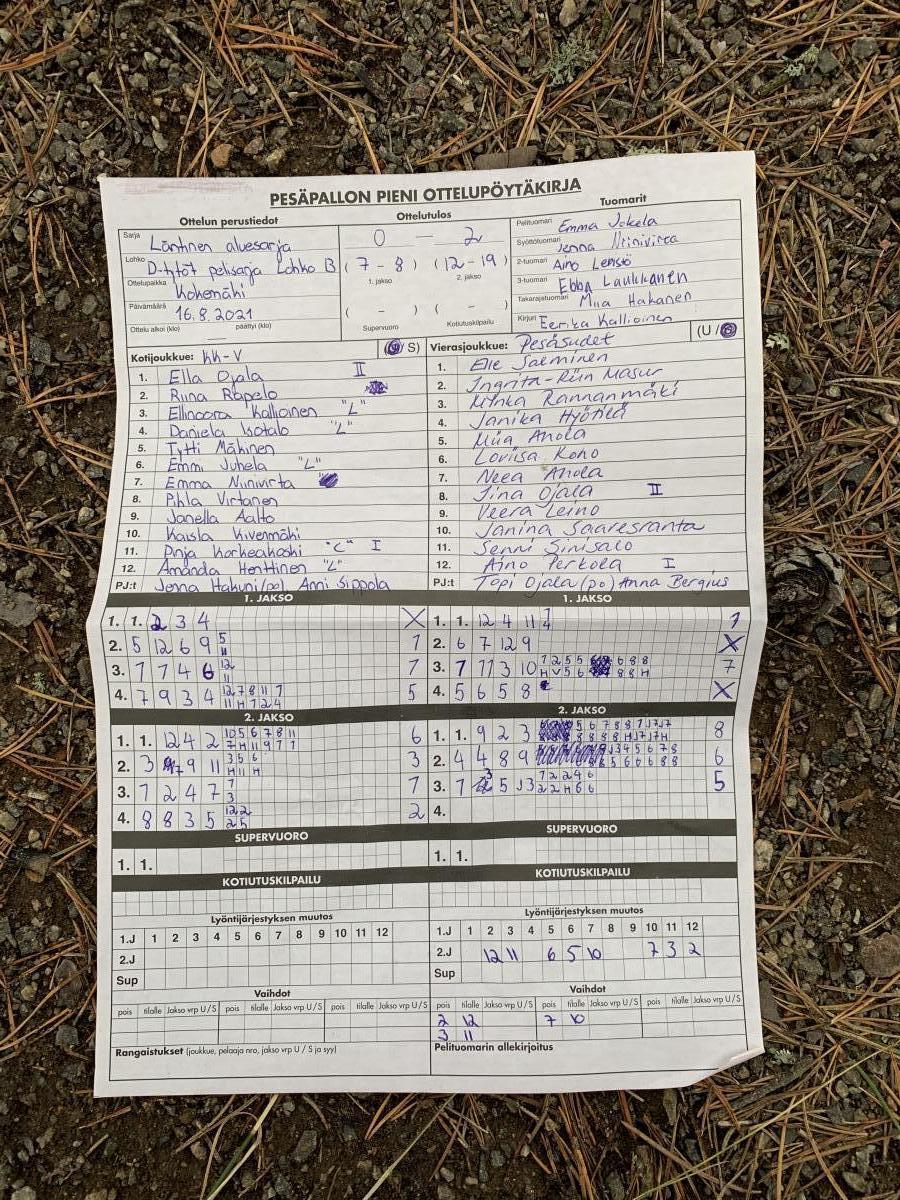 PESÄPALLON PIENI OTTELUPÖYTÄKIRJA
Ottelun perustiedot
Ottelutulos
Tuomarit
Sarja Läntinen aluesarja
Lohko D-tytöt pelisarja Lohko B
Ottelupaikka Kokemäki
Päivämäärä 16.8.2021
Ottelu alkoi (klo) päättyi (klo)
0 — 2
( 7 - 8 ) ( 12 - 19 )
1. jakso 2. jakso
( - ) ( - )
Supervuoro Kotiutuskilpailu
Pelituomari Emma Jokela
Syöttötuomari Jenna Niinivirta
2-tuomari Aino
3-tuomari Ebba Laukkanen
Takarajatuomari Miia Hakanen
Kirjuri Eerika Kallioinen
Kotijoukkue: KK-V ( / S)
1. Ella Ojala II
2. Riina Rapelo
3. Ellinoora Kallioinen "L"
4. Daniela Isotalo "L"
5. Tytti Mäkinen
6. Emmi Juhela "L"
7. Emma Niinivirta
8. Pihla Virtanen
9. Janella Aalto
10. Kaisla Kivenmäki
11. Pinja Korkeakoski "C" I
12. Amanda Henttinen "L"
PJ:t Jenna Hakuni (pe) Anni Sippola
Vierasjoukkue: Pesäsudet (U / )
1. Elle Salminen
2. Ingrita-Riin Masur
3. Minka Rannanmäki
4. Janika Hyötilä
5. Miia Anola
6. Loviisa Koho
7. Neea Anola
8. Tina Ojala II
9. Veera Leino
10. Janina Saaresranta
11. Senni Sinisalo
12. Aino Perkola I
PJ:t Topi Ojala (po) Anna Bergius
1. JAKSO
1. 1. 2 3 4 X
2. 5 12 6 9 5 11 1
3. 1 7 4 6 12 11 1
4. 7 9 3 4 12 7 8 11 1 11 H 1 2 4 5
1. JAKSO
1. 1. 12 4 11 1
2. 6 7 12 9 X
3. 1 11 3 10 7
4. 5 6 5 8 X
2. JAKSO
1. 1. 12 4 2 10 5 6 7 8 11 7 H 11 9 1 1 6
2. 3 9 11 3 5 6 H 11 H 3
3. 1 2 4 7 1 3 1
4. 8 8 3 5 12 2 2 5 2
2. JAKSO
1. 1. 9 2 3 8
2. 4 4 8 9 6
3. 1 5 J3 7 2 2 4 6 2 2 H 6 6 5
4.
SUPERVUORO
1. 1.
SUPERVUORO
1. 1.
KOTIUTUSKILPAILU
KOTIUTUSKILPAILU
Lyöntijärjestyksen muutos
1.J 1 2 3 4 5 6 7 8 9 10 11 12
2.J
Sup
Lyöntijärjestyksen muutos
1.J 1 2 3 4 5 6 7 8 9 10 11 12
2.J 12 11 6 5 10 7 3 2
Sup
Vaihdot
pois tilalle Jakso vrp U / S pois tilalle Jakso vrp U / S pois tilalle Jakso vrp U / S
Rangaistukset (joukkue, pelaaja nro, jakso vrp U / S ja syy)
Vaihdot
pois tilalle Jakso vrp U / S pois tilalle Jakso vrp U / S pois tilalle Jakso vrp U / S
2 12 7 10
3 11
Pelituomarin allekirjoitus